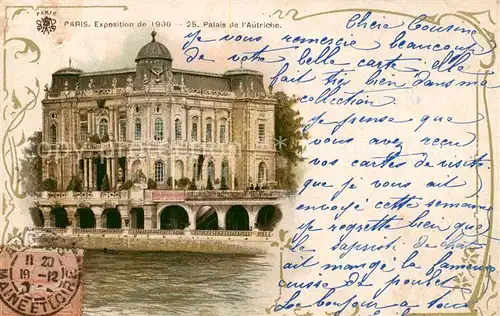 PARIS
PARIS. Exposition de 1900 — 25. Palais de l'Autriche.
Chère Cousine
je vous remercie beaucoup
de votre belle carte elle
fait très bien dans ma
collection.
je pense que
vous avez reçu
vos cartes de visite
que je vous ait
envoyé cette semaine
je regrette bien que
le sapristi de chat
ait mangé la fameuse
cuisse de poulet
Le bonjour a tous
11 20
19-12
MAINE ET LOIRE